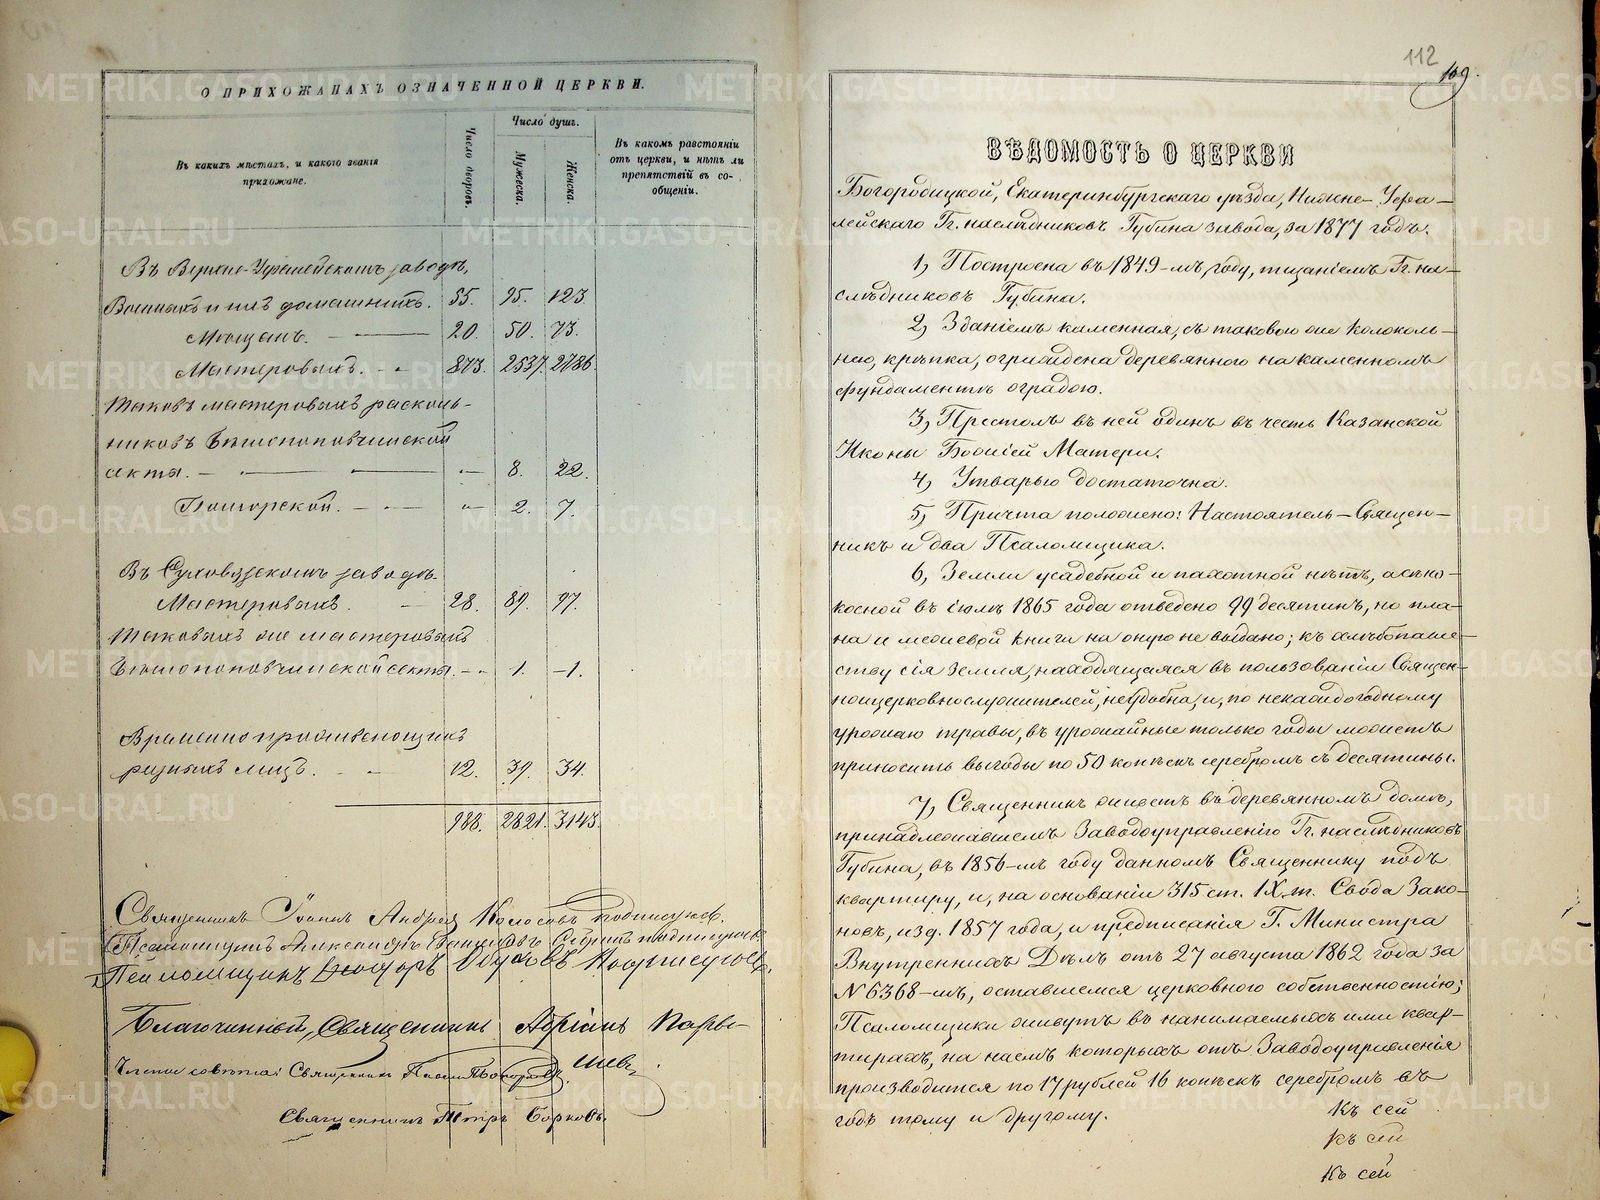 О ПРИХОЖАНАХЪ ОЗНАЧЕННОЙ ЦЕРКВИ.
Въ какихъ мѣстахъ, и какого званія
прихожане.
Число дворовъ.
Число душъ.
Мужеска.
Женска.
Въ какомъ разстояніи
отъ церкви, и нѣтъ ли
препятствій въ со-
общеніи.
Въ Верхне-Уфалейскомъ заводѣ,
Военныхъ и ихъ домашнихъ. 55. 95. 123.
Мѣщанъ. 20. 50. 73.
Мастеровыхъ. 873. 2537. 2786.
Таковъ мастеровыхъ расколь-
никовъ Бѣглопоповщинской
секты. — 8. 22.
Поморской. — 2. 7.
Въ Суховязскомъ заводѣ.
Мастеровыхъ. — 28. 89. 97.
Таковыхъ же мастеровыхъ
Бѣглопоповщинской секты. 1. 1.
Временно проживающихъ
разныхъ лицъ. 12. 39. 34.
988. 2821. 3143.
Священникъ Іоаннъ Андреевъ Колосовъ подписуюсь.
Псаломщикъ Александръ подписуюсь.
Псаломщикъ Подписуюсь.
Благочинный, Священникъ Адріанъ
Члены совѣта: Священникъ
Священникъ Петръ
112
109.
ВѢДОМОСТЬ О ЦЕРКВИ
Богородицкой, Екатеринбургскаго уѣзда, Нижне-Уфа-
лейскаго Гг. наслѣдниковъ Губина завода, за 1877 годъ.
1, Построена въ 1849-мъ году, тщаніемъ Гг. на-
слѣдниковъ Губина.
2, Зданіемъ каменная, съ таковою же колоколь-
нею, крѣпка, ограждена деревянною на каменномъ
фундаментѣ оградою.
3, Престолъ въ ней одинъ въ честь Казанской
Иконы Божіей Матери.
4, Утварью достаточна.
5, Причта положено: Настоятель-Священ-
никъ и два Псаломщика.
6, Земли усадебной и пахотной нѣтъ, а сѣно-
косной въ іюлѣ 1865 года отведено 99 десятинъ, но пла-
на и межевой книги на оную не выдано; къ хлѣбопаше-
ству сія земля, находящаяся въ пользованіи Священ-
ноцерковнослужителей, неудобна, и, по некаждогодному
урожаю травы, въ урожайные только годы можетъ
приносить выгоды по 50 копѣекъ серебромъ съ десятины.
7, Священникъ живетъ въ деревянномъ домѣ,
принадлежавшемъ Заводоуправленію Гг. наслѣдниковъ
Губина, въ 1856-мъ году данномъ Священнику подъ
квартиру, и, на основаніи 315 ст. IX. т. Свода Зако-
новъ, изд. 1857 года, и предписанія Г. Министра
Внутреннихъ Дѣлъ отъ 27 августа 1862 года за
№ 6368-мъ, оставшемся церковною собственностію;
Псаломщики живутъ въ нанимаемыхъ ими квар-
тирахъ, на наемъ которыхъ отъ Заводоуправленія
производится по 17 рублей 16 копѣекъ серебромъ въ
годъ тому и другому.
Къ сей
Къ сей
Къ сей